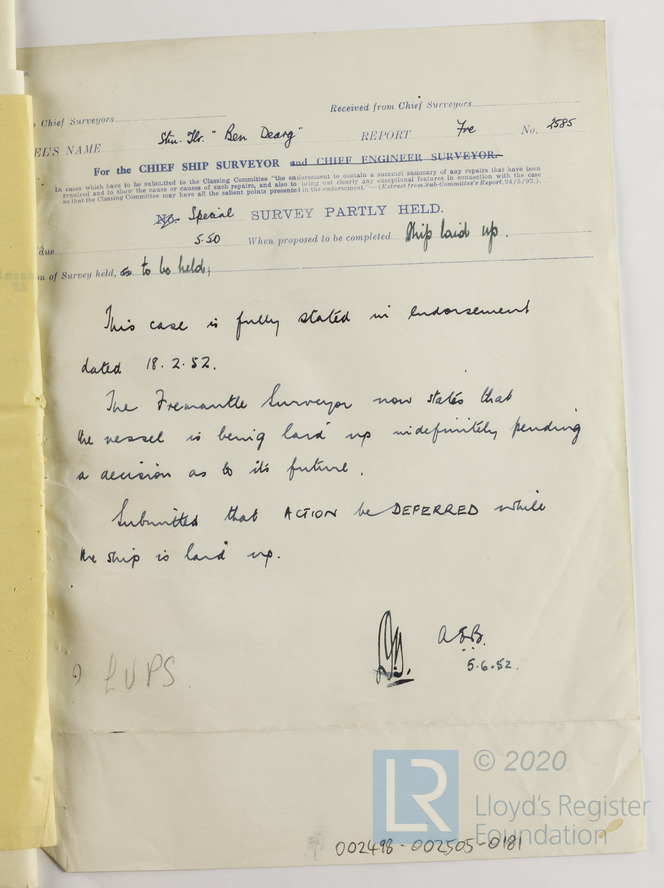 Chief Surveyors
Received from Chief Surveyors
NAME Stm. Tlr. "Ben Dearg" REPORT Fre No. 2585
For the CHIEF SHIP SURVEYOR and CHIEF ENGINEER SURVEYOR.
In cases which have to be submitted to the Classing Committee "the endorsement to contain a succinct summary of any repairs that have been
required and to show the cause or causes of such repairs, and also to bring out clearly any exceptional features in connection with the case
so that the Classing Committee may have all the salient points presented in the endorsement."—(Extract from Sub-Committee's Report, 24/5/92.).
No. Special SURVEY PARTLY HELD.
due 5.50 When proposed to be completed Ship laid up.
of Survey held, or to be held;
This case is fully stated in endorsement
dated 18.2.52.
The Fremantle Surveyor now states that
the vessel is being laid up indefinitely pending
a decision as to its future.
Submitted that ACTION be DEFERRED while
the ship is laid up.
A.E.B.
5.6.52.
LUPS
LR © 2020
Lloyd's Register
Foundation
002498-002505-0181